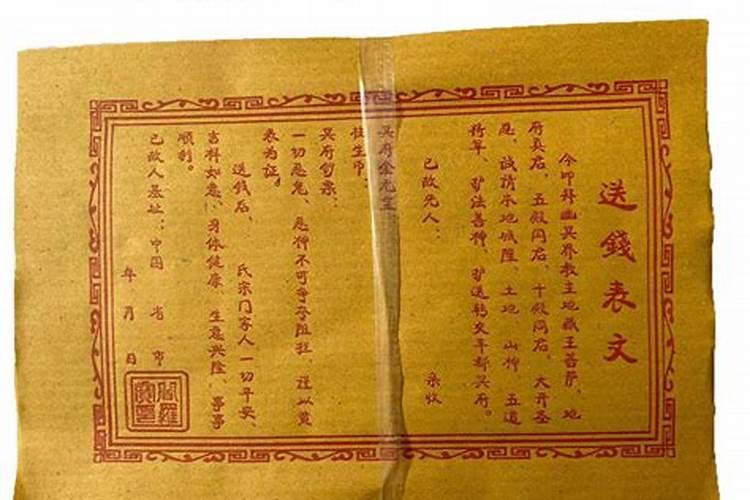 送錢表文
今叩拜幽冥界教主地藏王菩萨、地
府真君、五殿阎君、十殿阎君、大开圣
恩、诚请本地城隍、土地、山神、五道
将军、护法善神、护送转交丰都冥府。
已故先人： 亲收
冥府金元宝
往生币：
冥府钞票：
一切恶鬼、恶神不可争夺阻拦、谨以黄
表为证。
送钱后、 氏宗门家人一切平安、
吉祥如意、身体健康、生意兴隆、事事
顺利。
已故人墓址：中国 省 市
年 月 日